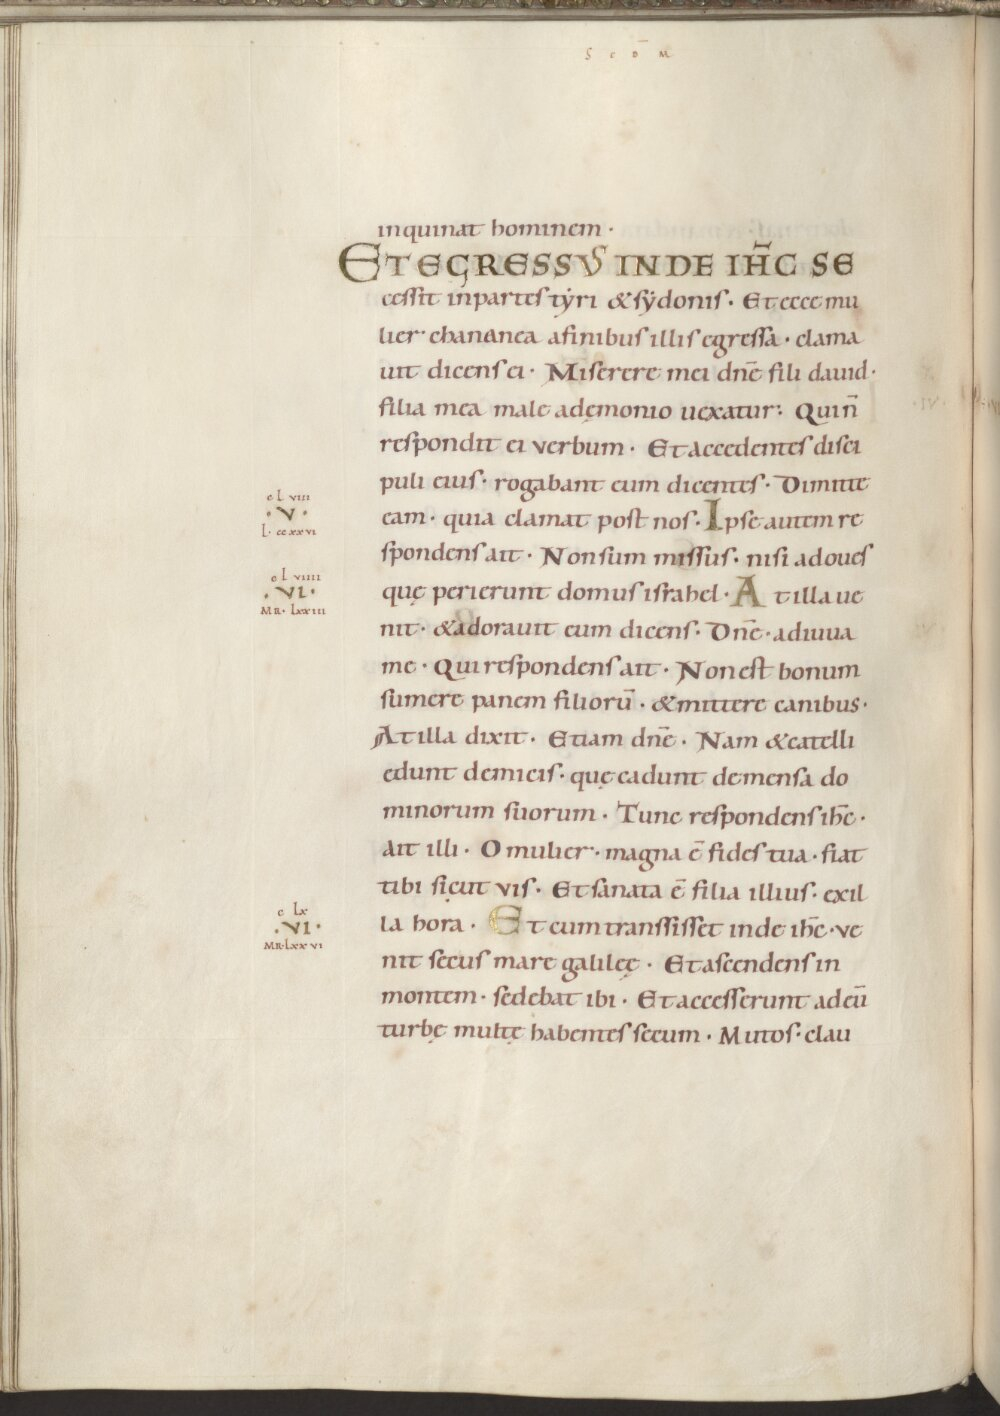 S C D̄ M
inquinat hominem ·
ET EGRESSUS INDE IHC̄ SE
cessit in partes tyri & sydonis · Et ecce mu
lier chananea a finibus illis egressa · clama
uit dicens ei · Miserere mei dn̄e fili dauid ·
filia mea male a dęmonio uexatur : Qui n̄
respondit ei verbum · Et accedentes disci
puli eius · rogabant eum dicentes · Dimitte
c L viii
· V ·
L · ccxxvi
eam · quia clamat post nos · Ipse autem re
spondens ait · Non sum missus · nisi ad oues
c L viiii
· VI ·
MR · Lxxiii
quę perierunt domus israhel · At illa ue
nit · & adorauit eum dicens · Dn̄e · adiuua
me · Qui respondens ait · Non est bonum
sumere panem filiorū · & mittere canibus ·
At illa dixit · Etiam dn̄e · Nam & catelli
edunt de micis · quę cadunt de mensa do
minorum suorum · Tunc respondens ihc̄ ·
ait illi · O mulier · magna ē fides tua · fiat
tibi sicut vis · Et sanata ē filia illius · ex il
c Lx
· VI ·
MR · Lxxvi
la hora · Et cum transsisset inde ihc̄ · ve
nit secus mare galileę · Et ascendens in
montem · sedebat ibi · Et accesserunt ad eū
turbę multę habentes secum · Mutos · clau